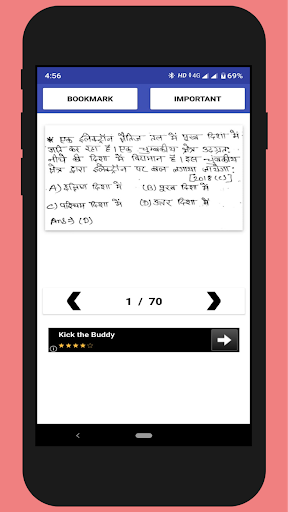 4:56
HD 4G 69%
BOOKMARK
IMPORTANT
* एक इलेक्ट्रॉन क्षैतिज तल में पूरब दिशा में
जा रहा है। एक चुम्बकीय क्षेत्र उदग्रतः
नीचे की दिशा में विद्यमान है। इस चुंबकीय
क्षेत्र द्वारा इलेक्ट्रॉन पर बल लगाया जायेगा:
[2018 (C)]
A) दक्षिण दिशा में (B) पूरब दिशा में
C) पश्चिम दिशा में (D) उत्तर दिशा में
Ans:→ (D)
1 / 70
Kick the Buddy